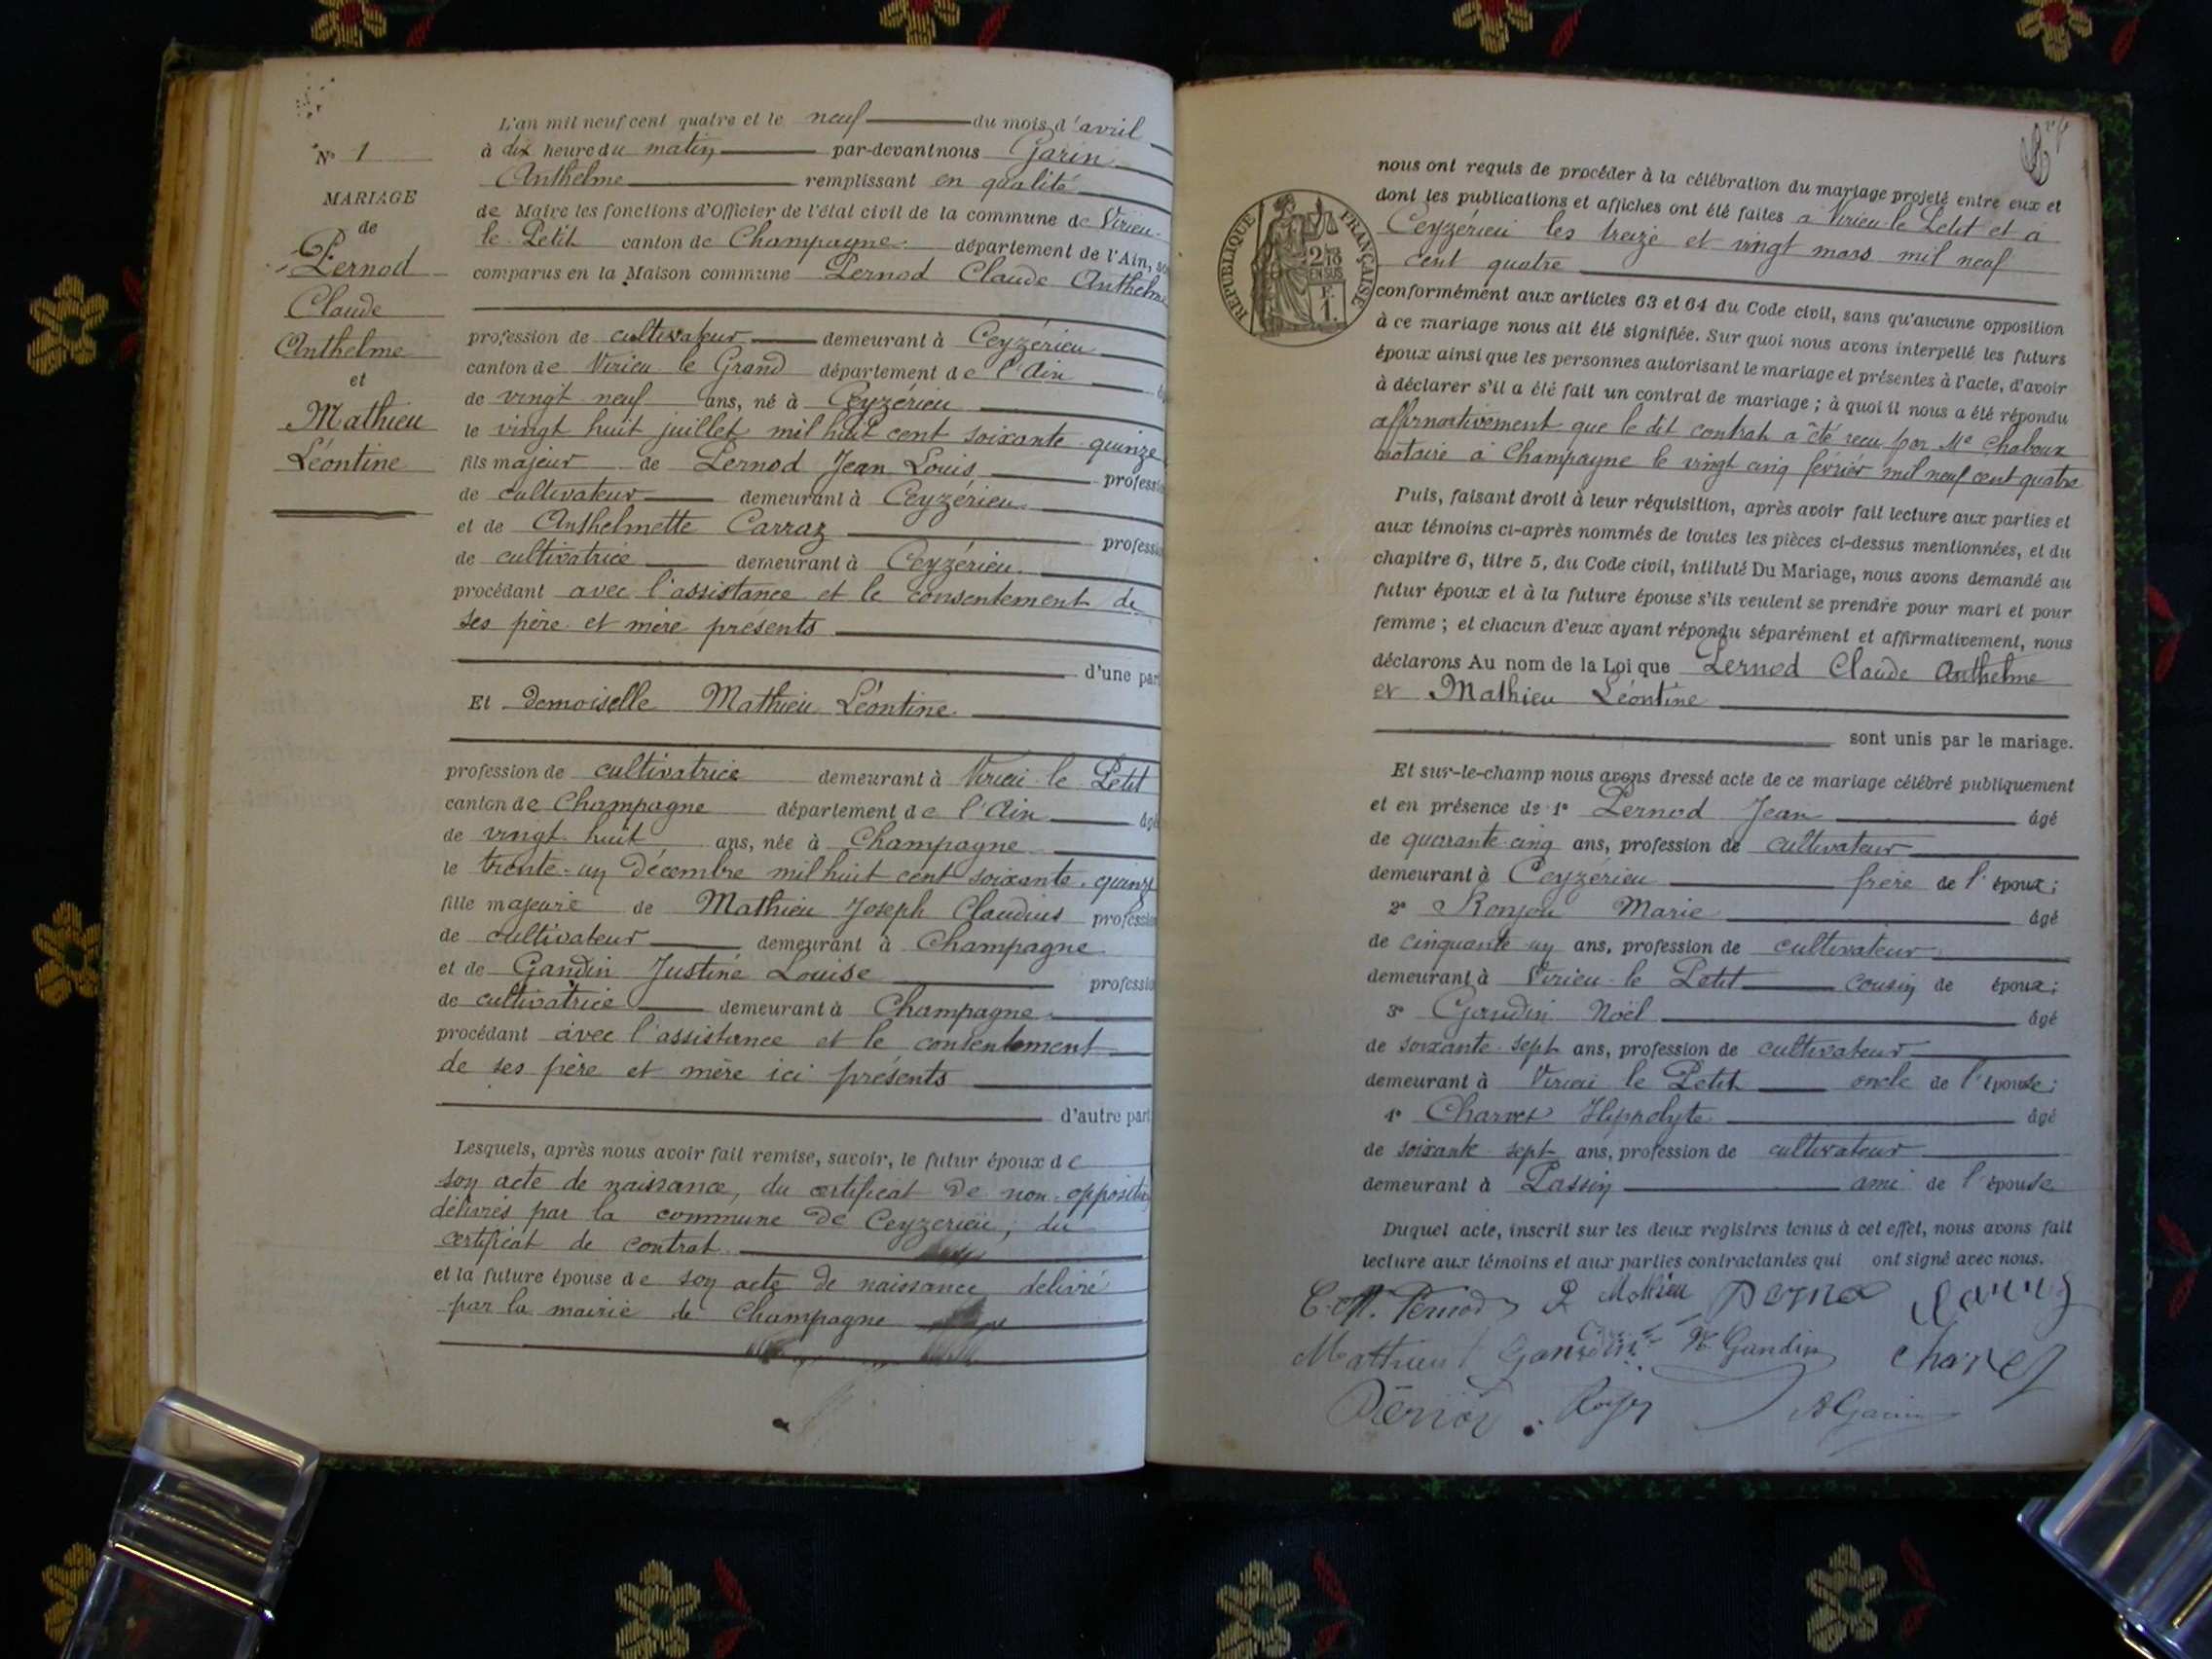 N° 1
MARIAGE
de
Pernod
Claude
Anthelme
et
Mathieu
Léontine
L'an mil neuf cent quatre et le neuf du mois d'avril
à dix heure du matin par-devant nous Garin
Anthelme remplissant en qualité
de Maire les fonctions d'Officier de l'état civil de la commune de Virieu-
le-Petit canton de Champagne département de l'Ain, so
comparus en la Maison commune Pernod Claude Anthelme
profession de cultivateur demeurant à Ceyzérieu
canton de Virieu-le Grand département de l'Ain
de vingt-neuf ans, né à Ceyzérieu
le vingt huit juillet mil huit cent soixante-quinze
fils majeur de Pernod Jean Louis professio
de cultivateur demeurant à Ceyzérieu
et de Anthelmette Carraz professio
de cultivatrice demeurant à Ceyzérieu.
procédant avec l'assistance et le consentement de
ses père et mère présents
d'une part
Et Demoiselle Mathieu Léontine
profession de cultivatrice demeurant à Virieu-le-Petit
canton de Champagne département de l'Ain âgé
de vingt-huit ans, née à Champagne
le trente-un Décembre mil huit cent soixante-quinze
fille majeure de Mathieu Joseph Claudius profession
de cultivateur demeurant à Champagne
et de Gandin Justine Louise professio
de cultivatrice demeurant à Champagne
procédant avec l'assistance et le consentement
de ses père et mère ici présents
d'autre part
Lesquels, après nous avoir fait remise, savoir, le futur époux de
son acte de naissance, du certificat de non-opposition
délivrés par la commune de Ceyzerieu; du
certificat de contrat
et la future épouse de son acte de naissance delivré
par la mairie de Champagne
RÉPUBLIQUE FRANÇAISE
2/10 EN SUS
F. 1.
nous ont requis de procéder à la célébration du mariage projeté entre eux et
dont les publications et affiches ont été faites à Virieu-le-Petit et à
Ceyzérieu les treize et vingt mars mil neuf
cent quatre
conformément aux articles 63 et 64 du Code civil, sans qu'aucune opposition
à ce mariage nous ait été signifiée. Sur quoi nous avons interpellé les futurs
époux ainsi que les personnes autorisant le mariage et présentes à l'acte, d'avoir
à déclarer s'il a été fait un contrat de mariage; à quoi il nous a été répondu
affirmativement que le dit contrat a été recu par Me Chaboux
notaire à Champagne le vingt cinq février mil neuf cent quatre
Puis, faisant droit à leur réquisition, après avoir fait lecture aux parties et
aux témoins ci-après nommés de toutes les pièces ci-dessus mentionnées, et du
chapitre 6, titre 5, du Code civil, intitulé Du Mariage, nous avons demandé au
futur époux et à la future épouse s'ils veulent se prendre pour mari et pour
femme; et chacun d'eux ayant répondu séparément et affirmativement, nous
déclarons Au nom de la Loi que Pernod Claude Anthelme
et Mathieu Léontine
sont unis par le mariage.
Et sur-le-champ nous avons dressé acte de ce mariage célébré publiquement
et en présence de 1° Pernod Jean âgé
de quarante-cinq ans, profession de cultivateur
demeurant à Ceyzérieu frère de l'époux;
2° Ronjou Marie âgé
de cinquante-un ans, profession de cultivateur
demeurant à Virieu-le Petit cousin de époux;
3° Gandin Noël âgé
de soixante-sept ans, profession de cultivateur
demeurant à Virieu le Petit oncle de l'épouse;
4° Charvet Hippolyte âgé
de soixante-sept ans, profession de cultivateur
demeurant à Passin ami de l'épouse
Duquel acte, inscrit sur les deux registres tenus à cet effet, nous avons fait
lecture aux témoins et aux parties contractantes qui ont signé avec nous.
C.A. Pernod L Mathieu Pernod
Mathieu Gandin N. Gandin Charvet
Pernod A Garin